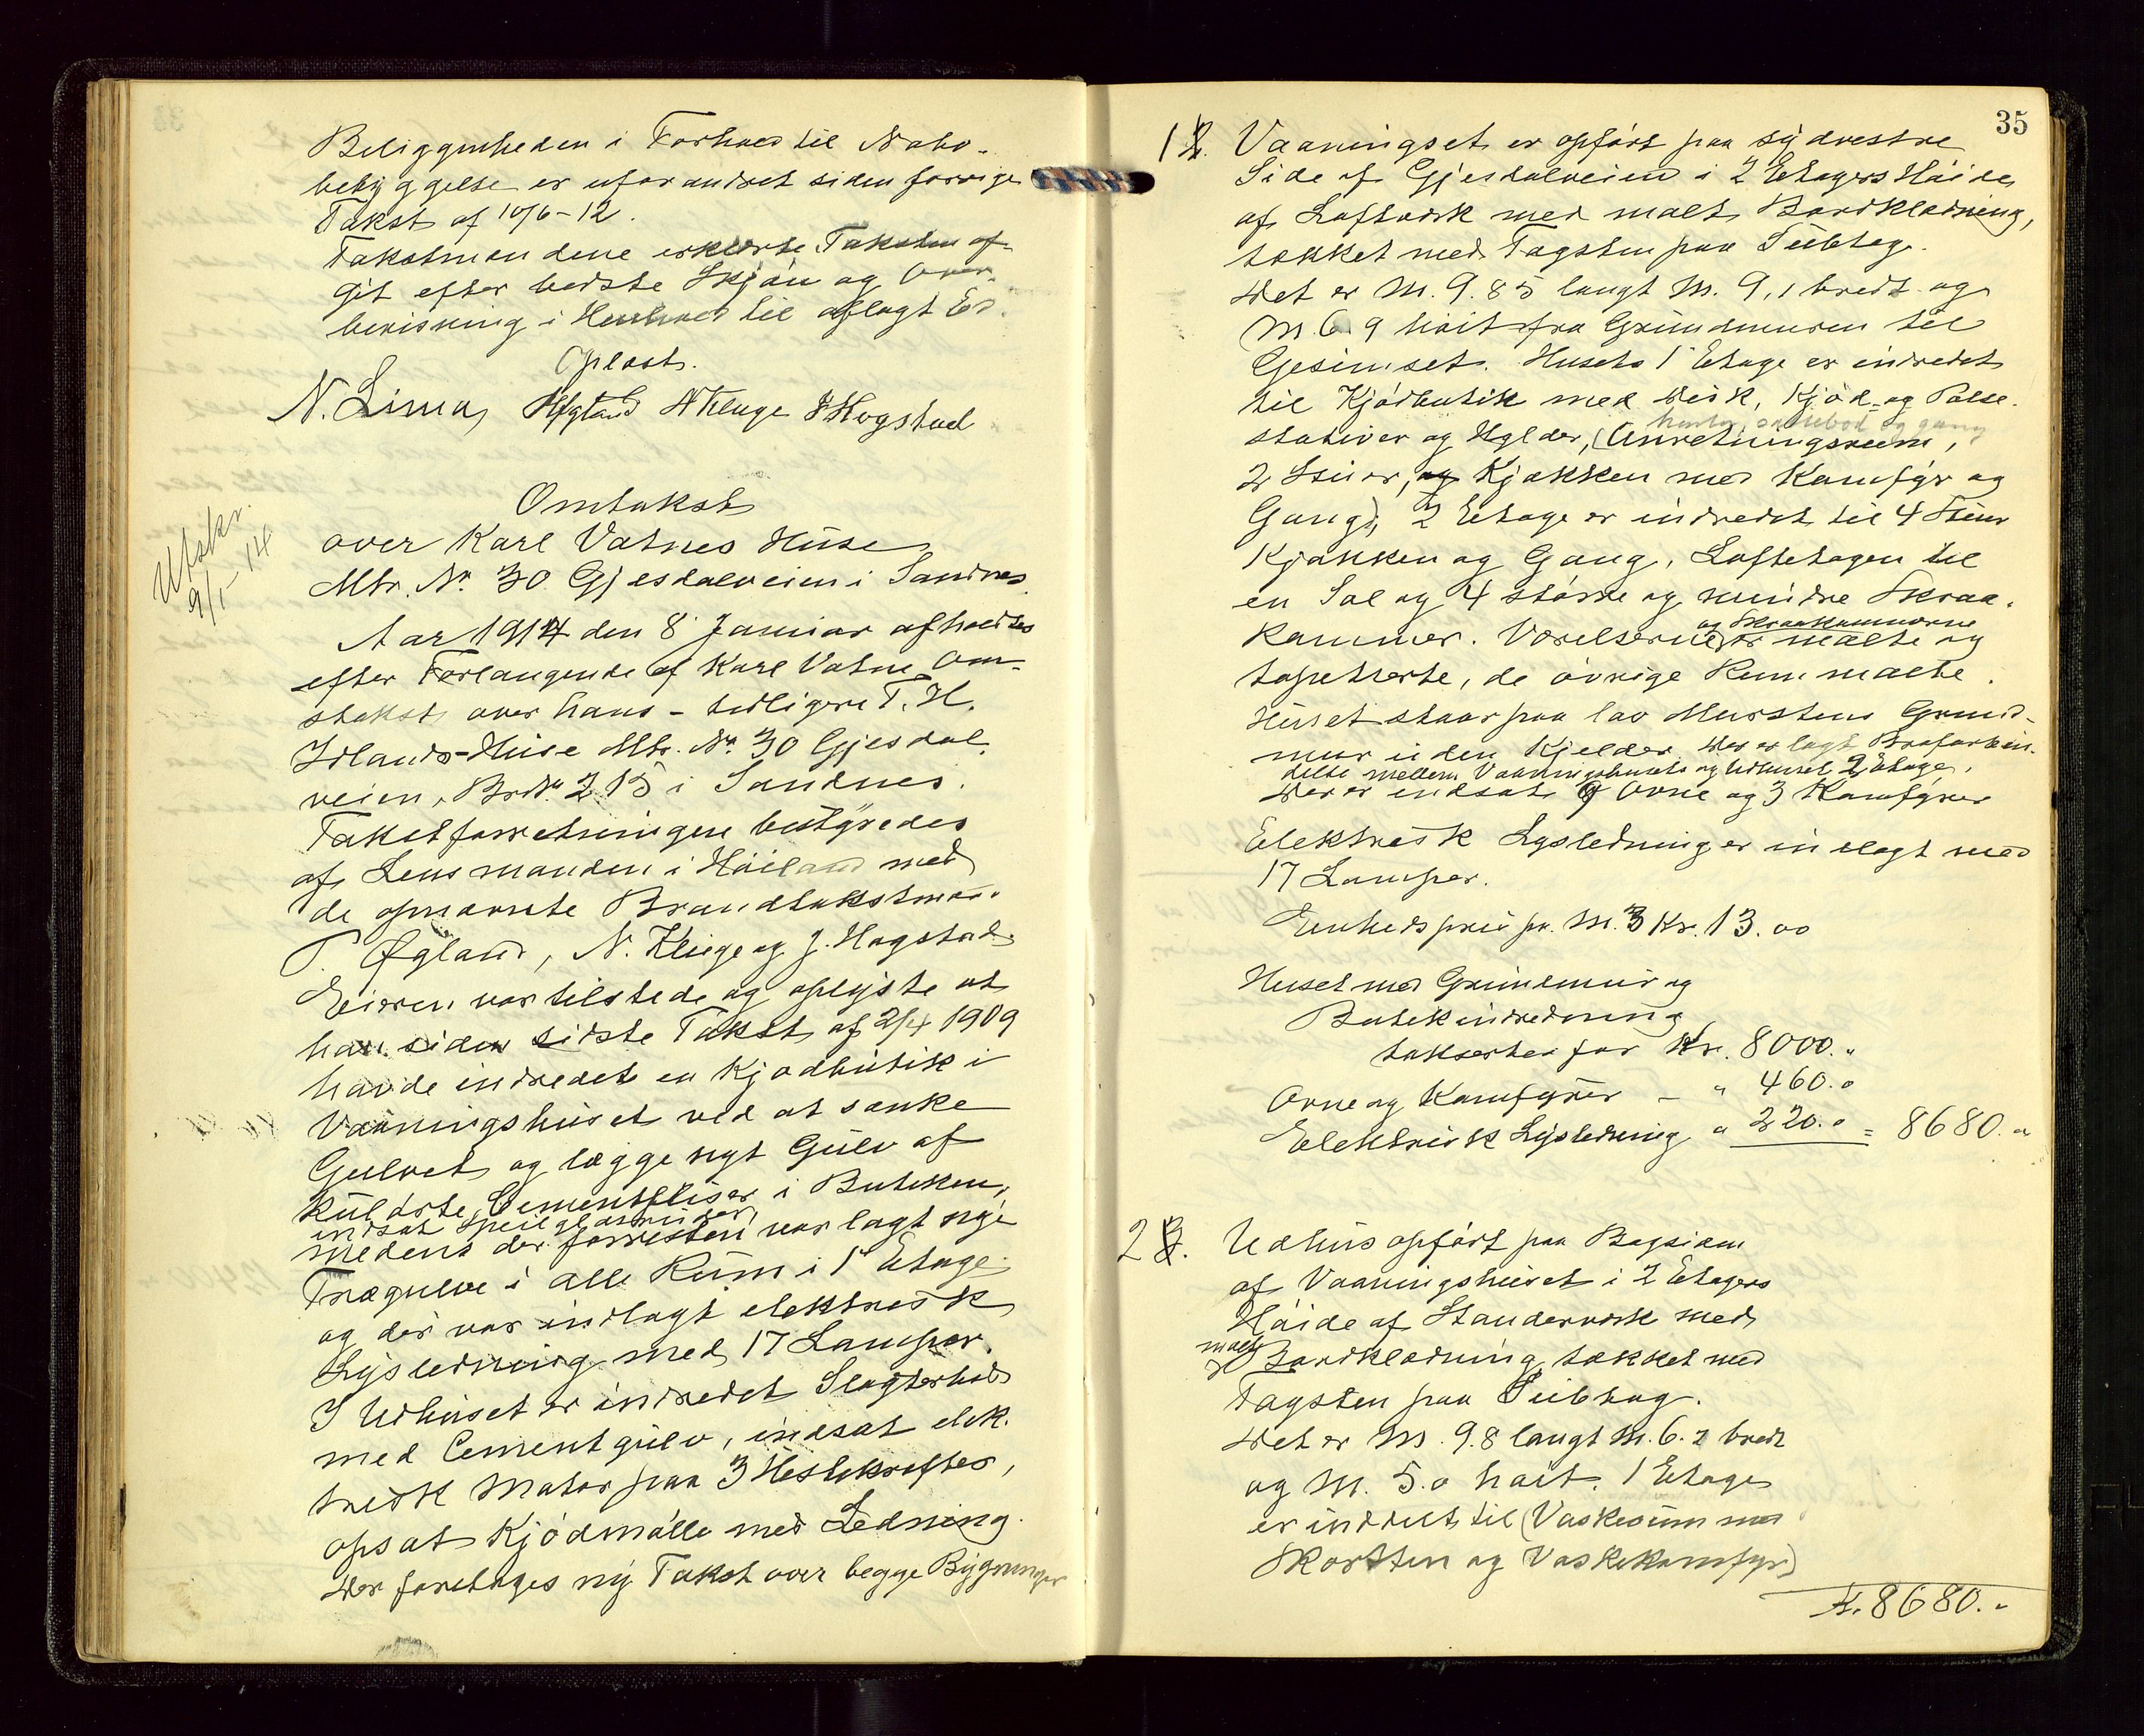 Beliggenheden i Forhold til Nabo-
bebyggelse er uforandret siden forrige
Takst af 10/6-12.
Takstmændene erklærte Taksten af-
git efter bedste Skjøn og Over-
bevisning i Henhold til aflagt Ed.
Oplæst.
N. Lima, N Kluge J Hogstad
Omtakst
over Karl Vatnes Huse
Mtr. Nr. 30 Gjesdalveien i Sandnes.
Utskr.
9/1-14
Aar 1914 den 8 Januar afholdtes
efter Forlangende af Karl Vatne Om-
stakst over hans - tidligere T. H.
Idlands-Huse Mtr. Nr. 30 Gjesdal-
veien, Br.Nr. 215 i Sandnes.
Takstforretningen bestyredes
af Lensmanden i Høiland med
de opnævnte Brandtakstmæn.
T. Øgland, N. Kluge og J. Hogstad.
Eieren var tilstede og oplyste at
han siden sidste Takst af 2/4 1909
havde indredet en Kjødbutik i
Vaaningshuset ved at sænke
Gulvet og lægge nyt Gulv af
kulørte Cementfliser i Butikken,
indsat Speilglasruder,
medens der forresten var lagt nye
Trægulve i alle Rum i 1ste Etage
og der var indlagt elektrisk
Lysledning med 17 Lamper.
I Udhuset er indredet Slagterhus
med Cementgulv, indsat elek-
trisk Motor paa 3 Hestekræfter,
opsat Kjødmølle med Ledning.
Der foretages ny Takst over begge Bygninger
35
1. Vaaningset er opført paa sydvestre
Side af Gjesdalveien i 2 Etagers Høide
af Loftværk med malt Bordklædning,
tækket med Tagsten paa Subtage.
Det er M. 9.85 langt M. 9,1 bredt og
M. 6.9 høit fra Grundmuren til
Gesimset. Husets 1 Etage er indredet
til Kjødbutik med Disk, Kjød- og Pølse-
stativer og Hylder, (Anretningsrum,
2 Stuer, og Kjøkken med Komfyr og
Gang), 2 Etage er indredet til 4 Stuer
Kjøkken og Gang, Loftetagen til
en Sal og 4 større og mindre Skraa-
kammer. Værelserne er malte og
og Skraakammerne
tapetserte, de øvrige Rum malte.
Huset staar paa lav Murstens Grund-
mur uden Kjelder. Der er lagt Broforbin-
delse mellem Vaaningshusets og Udhusets 2 Etage.
Der er indsat 9 Ovne og 3 Komfyrer
Elektrisk Lysledning er indlagt med
17 Lamper.
Enhedspris pr. M.3 Kr. 13.00
Huset med Grundmur og
Butikindredning
taksertes for Kr. 8000."
Ovne og Komfyrer - " 460."
Elektrisk Lysledning " 220." = 8680."
2. Udhus opført paa Bagsiden
af Vaaningshuset i 2 Etagers
Høide af Standerværk med
malt
Bordklædning tækket med
Tagsten paa Subtag.
Det er M. 9.8 langt M. 6.2 bredt
og M. 5.0 høit. 1 Etage
er indredet til (Vaskerum med
Skorsten og Vaskekomfyr)
Kr. 8680."